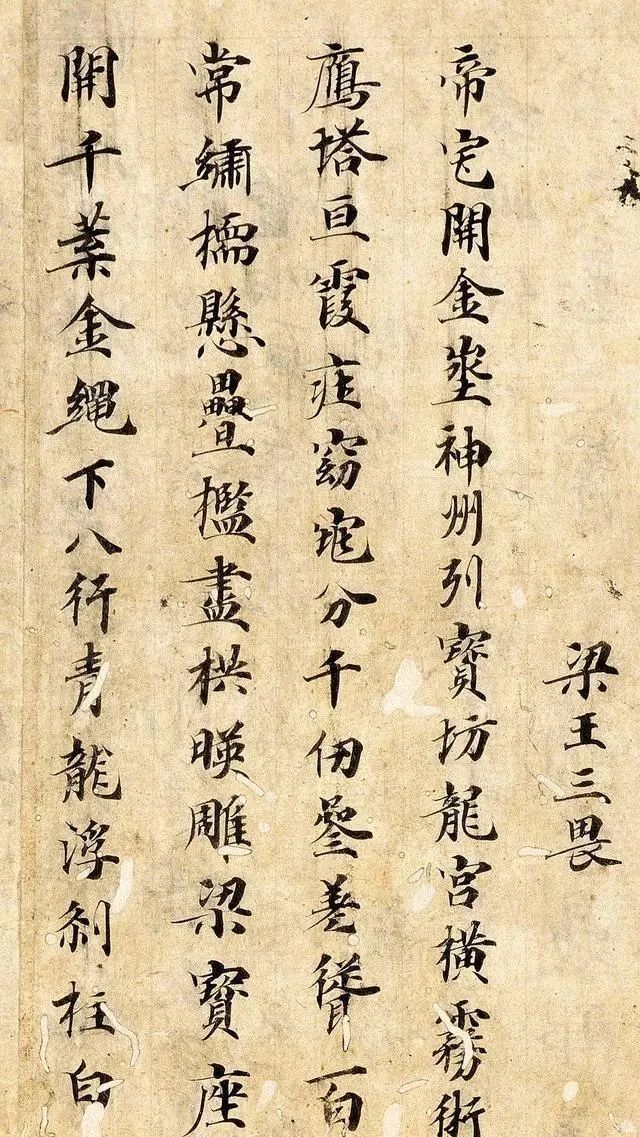 梁王三畏
帝宅開金埊神州列寶坊龍宮橫霧術
鷹塔亘霞疰窈窕分千仞參差聳百
常繡栭懸疊檻畫栱暎雕梁寶座
開千葉金繩下八行青龍浮刹柱白